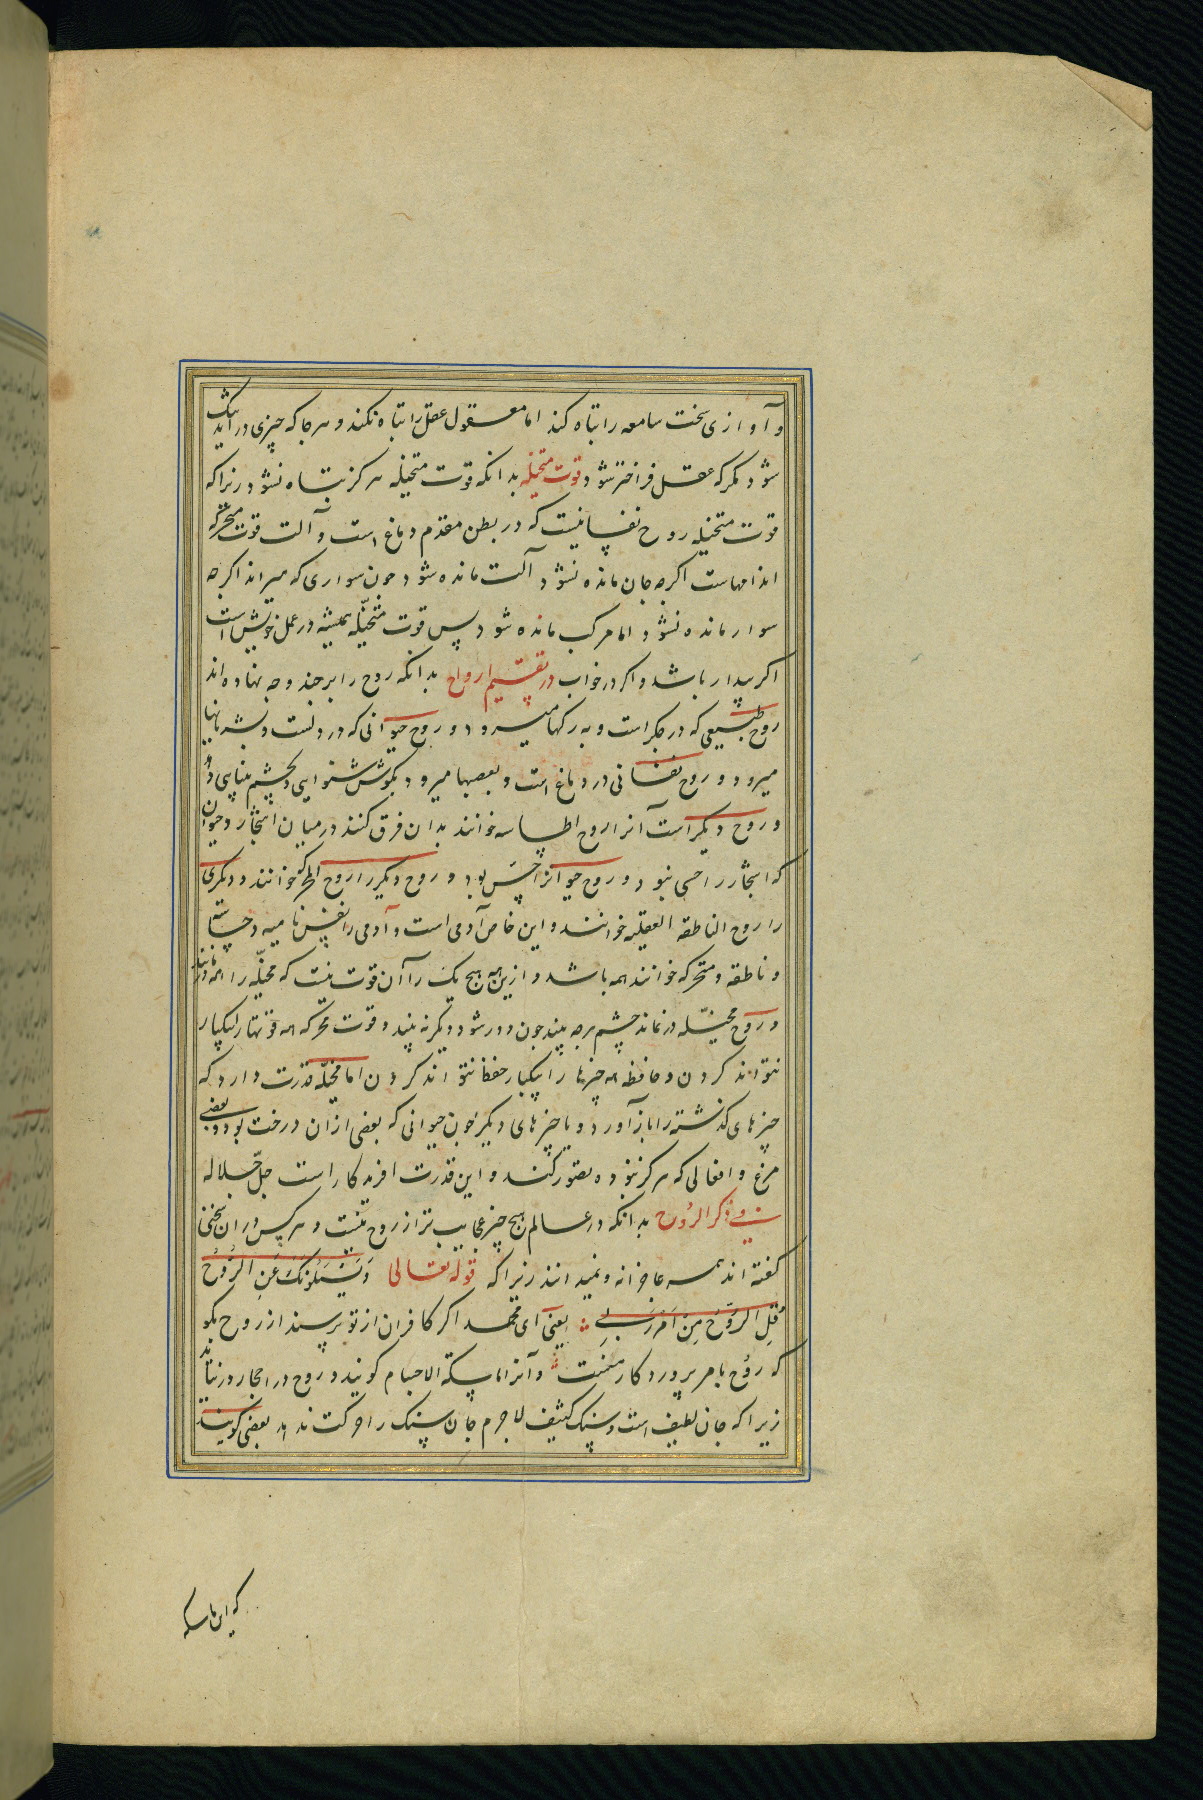 و آوازی سخت سامعه را تباه کند اما معقول عقل را تباه نکند و هر جا که چیزی در آید تنگ
شود مکر که عقل فراختر شود قوت متخیله بدانکه قوت متخیله هرکز تباه نشود زیرا که
قوت متخیله روح نفسانیست که در بطن مقدم دماغ است و آلت قوت متحرکه
اندامهاست اکرچه جان مانده نشود آلت مانده شود چون سواری که میراند اکرچه
سوار مانده نشود اما مرکب مانده شود پس قوت متخیّله همیشه در عمل خویش است
اکر بیدار باشد و اکر در خواب در تقسیم ارواح بدانکه روح را بر چند وجه نهاده‌اند
روح طبیعی که در جکر است و به رکها میرود و روح حیوانی که در دلست و بشریانها
میرود و روح نفسانی در دماغ است و بعصبها میرود بکوش شنوایی و بچشم بینایی دهد
و روح دیکر است آنرا روح الحاسه خوانند بدان فرق کنند در میان اشجار و حیوان
که اشجار را حس نبود و روح حیوانرا حسّ بود و روح دیکر را روح المحرکه خوانند و دیکری
را روح الناطقه العقلیه خوانند و این خاص آدمی است و آدمی را نفس نامیه و حساسه
و ناطقه و متحرکه خوانند همه باشد و ازین همه هیچ یک را آن قوت نیست که مخیّله را همه در مانند
و روح مخیّله در نماند چشم هر چه بیند چون دور شود دیکر نه بیند و قوت محرکه همه قوتها را بیکبار
نتواند کردن و حافظه همه چیزها را بیکبار حفظ نتواند کردن اما مخیّله قدرت دارد که
چیزهای کذشته را باز آورد و یا چیزهای دیکر چون حیوانی که بعضی از آن درخت بود و بعضی
مرغ و افعالی که هرکز نبوده تصور کند و این قدرت افریدکار است جلّ جلاله
فی ذکر الروح بدانکه در عالم هیچ چیز عجایب تر از روح نیست و هر کس در آن سخنی
کفته‌اند همه عاجزانه و نمیدانند زیرا که قوله تعالی وَیَسْئَلُونَکَ عَنِ الرُّوحِ
قُلِ الرُّوحُ مِنْ اَمْرِ رَبِّی یعنی ای محمد اکر کافران از تو پرسند از روح بکو
که روح بامر پروردکار منست و آنرا ماسکة الاجسام کویند و روح در احجار در نیابد
زیرا که جان لطیف است و سنک کثیف لاجرم جان سنک را حرکت ندهد بعضی کویند
که این ماسکه